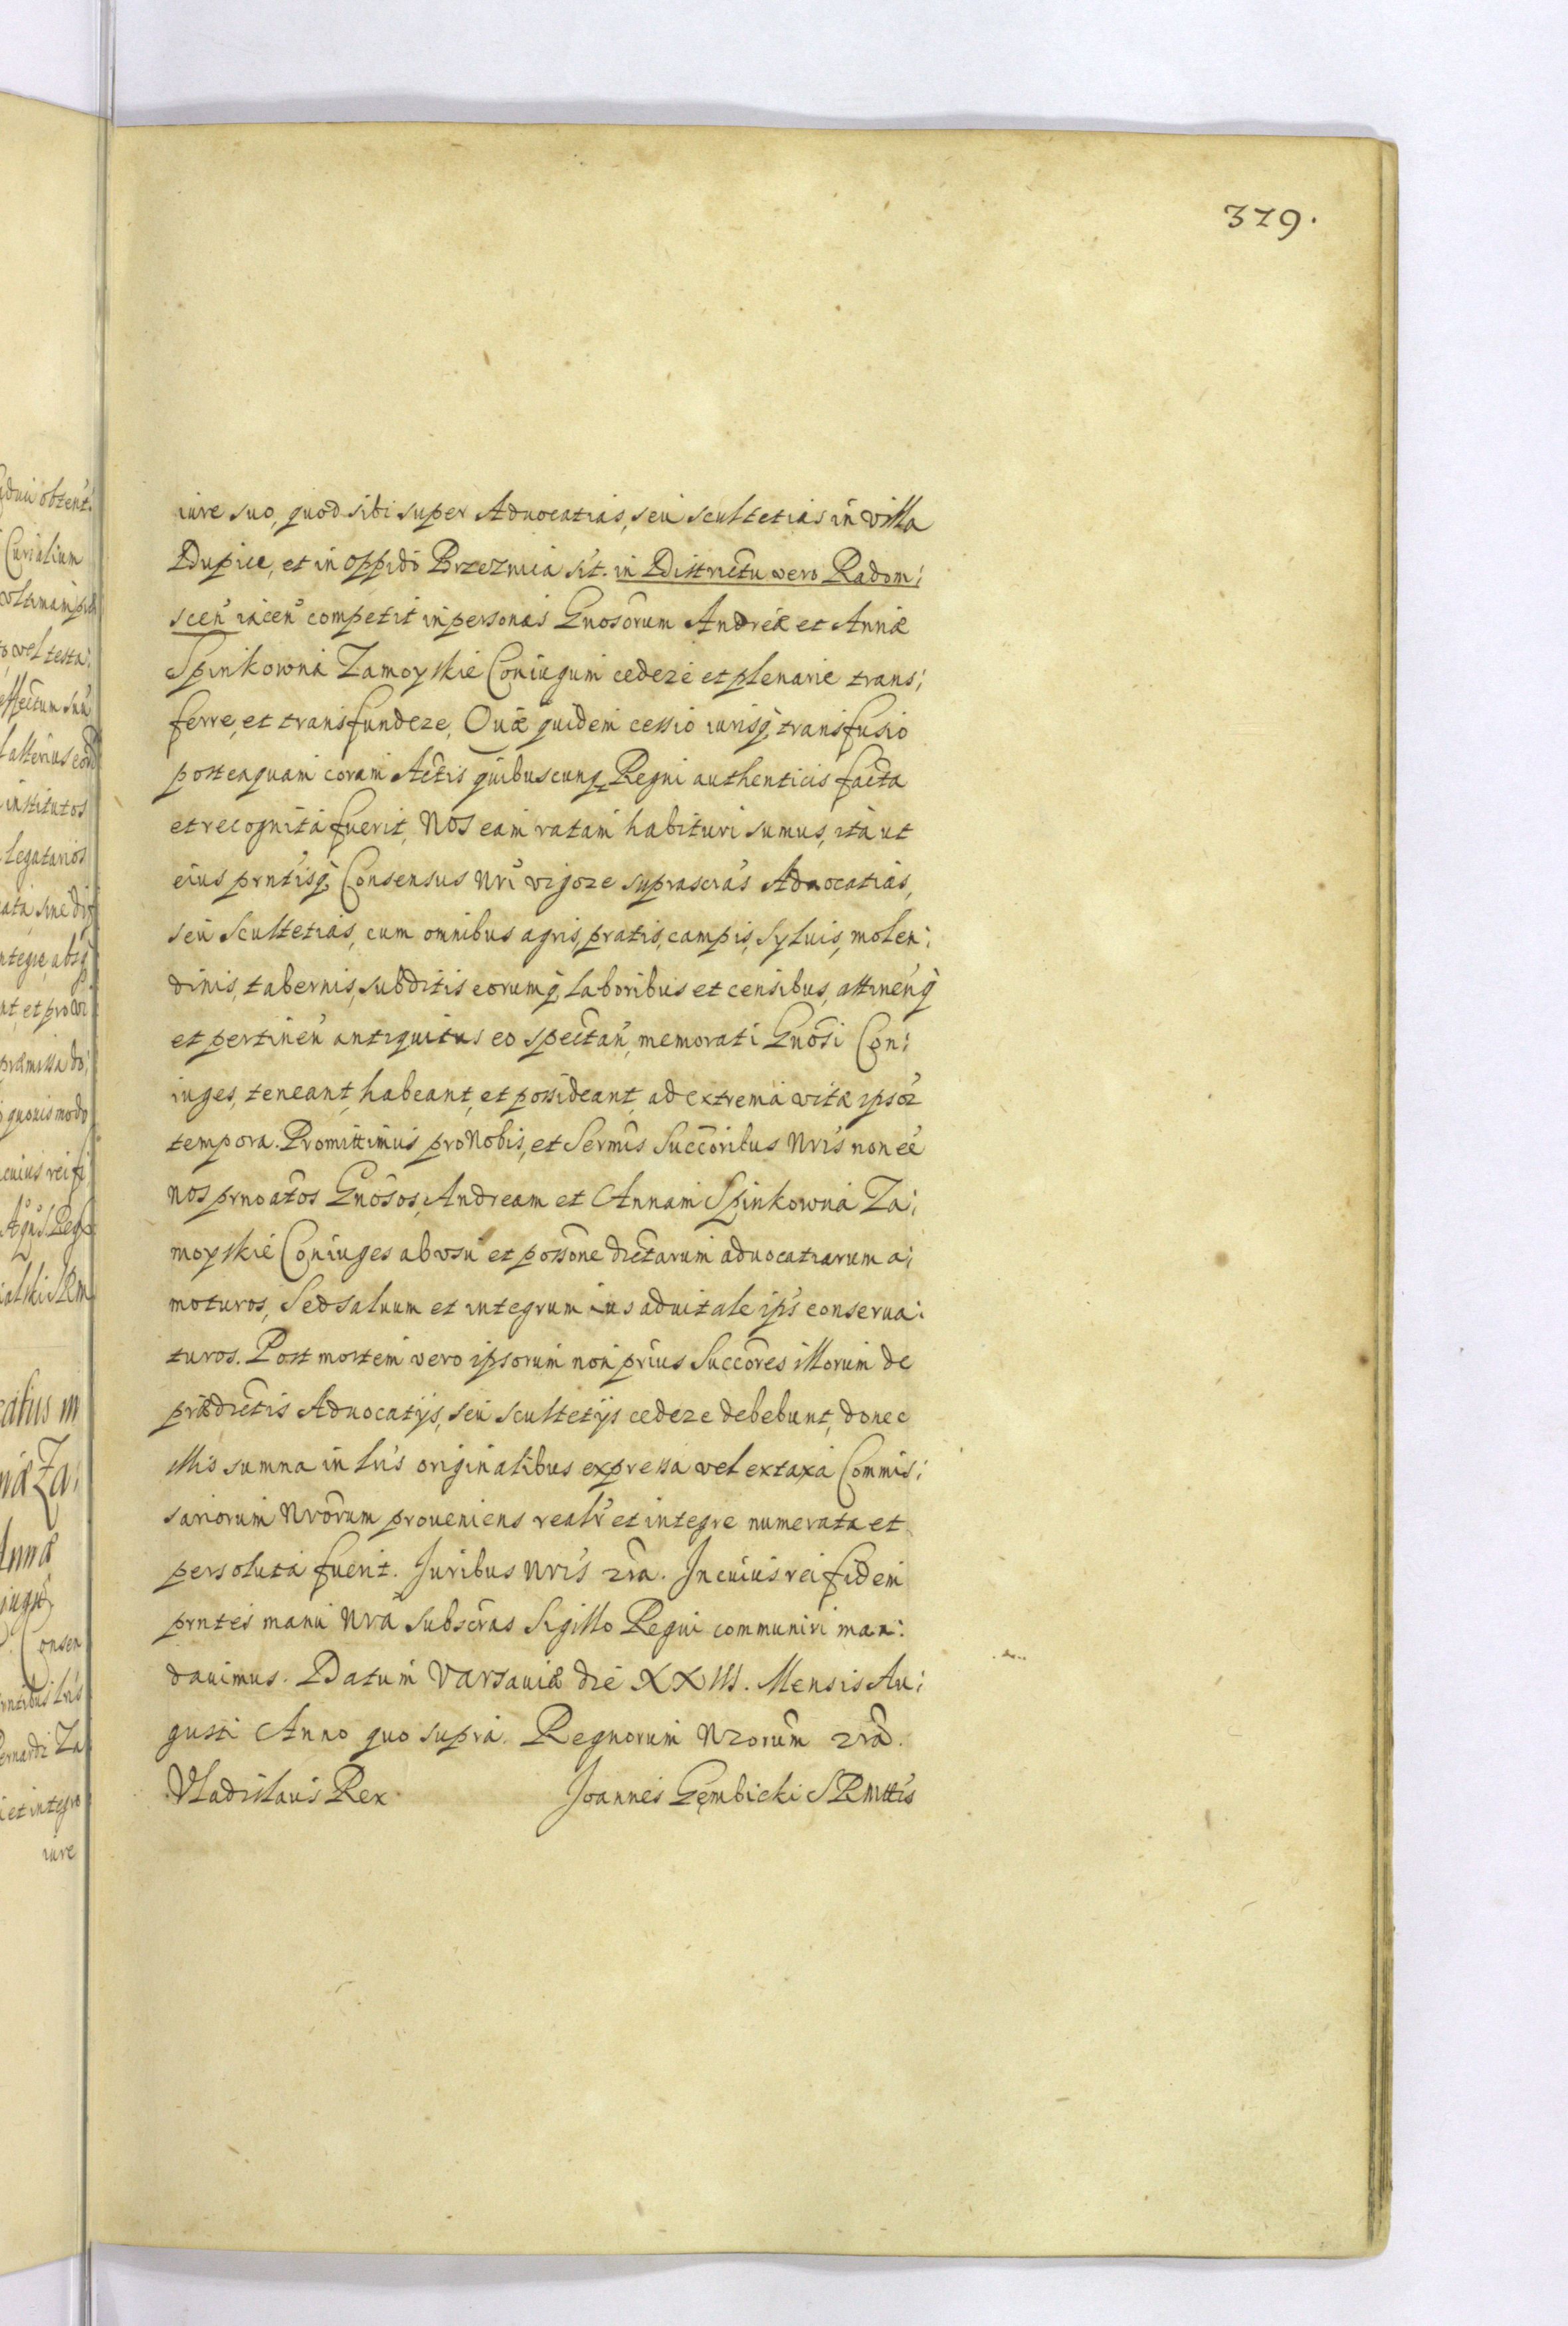 379.
iure suo, quod sibi super Aduocatias, seu scultetias in villa
Dupice, et in oppido Brzeznica sit. in Districtu vero Radom:
scen̄ iacen̄ competit in personas Gnosorum Andreæ et Annæ
Spinkowna Zamoyskie Coniugum cedere et plenarie trans:
ferre, et transfundere, Quæ quidem cessio iurisq̃ transfusio
posteaquam coram Actis quibuscunq̃ Regni authenticis facta
et recognita fuerit, Nos eam ratam habituri sumus, ita ut
eius prntisq̃ Consensus Nri vigore suprascrãs Aduocatias,
seu Scultetias, cum omnibus agris, pratis, campis, syluis, molen:
dinis, tabernis, subditis eorumq̃ laboribus et censibus, attinenq̃
et pertinen̄ antiquitus eo spectan̄, memorati Gnosi Con:
iuges, teneant, habeant, et possideant, ad extrema vitæ ipsor̃
tempora. Promittimus pro Nobis, et Sermis Succoribus Nris non eẽ
nos prnoatos Gnosos, Andream et Annam Spinkowna Za:
moyskie Coniuges ab vsu et possone dictarum aduocatiarum a:
moturos, Sed saluum et integrum ius aduitale ips̃ conserua:
turos. Post mortem vero ipsorum non prius Succores illorum de
prædictis Aduocatijs, seu scultetijs cedere debebunt, donec
illis summa in lris originalibus expressa vel ex taxa Commis:
sariorum Nrorum proueniens realr̃ et integre numerata et
persoluta fuerit. Juribus Nris 2ra. In cuius rei fidem
prntes manu Nra subscras Sigillo Regni communiri man:
dauimus. Datum Varsauiæ die XXIII. Mensis Au:
gusti Anno quo supra. Regnorum Nrorum 2ra.
Vladislaus Rex Joannes Gembicki SRMttis